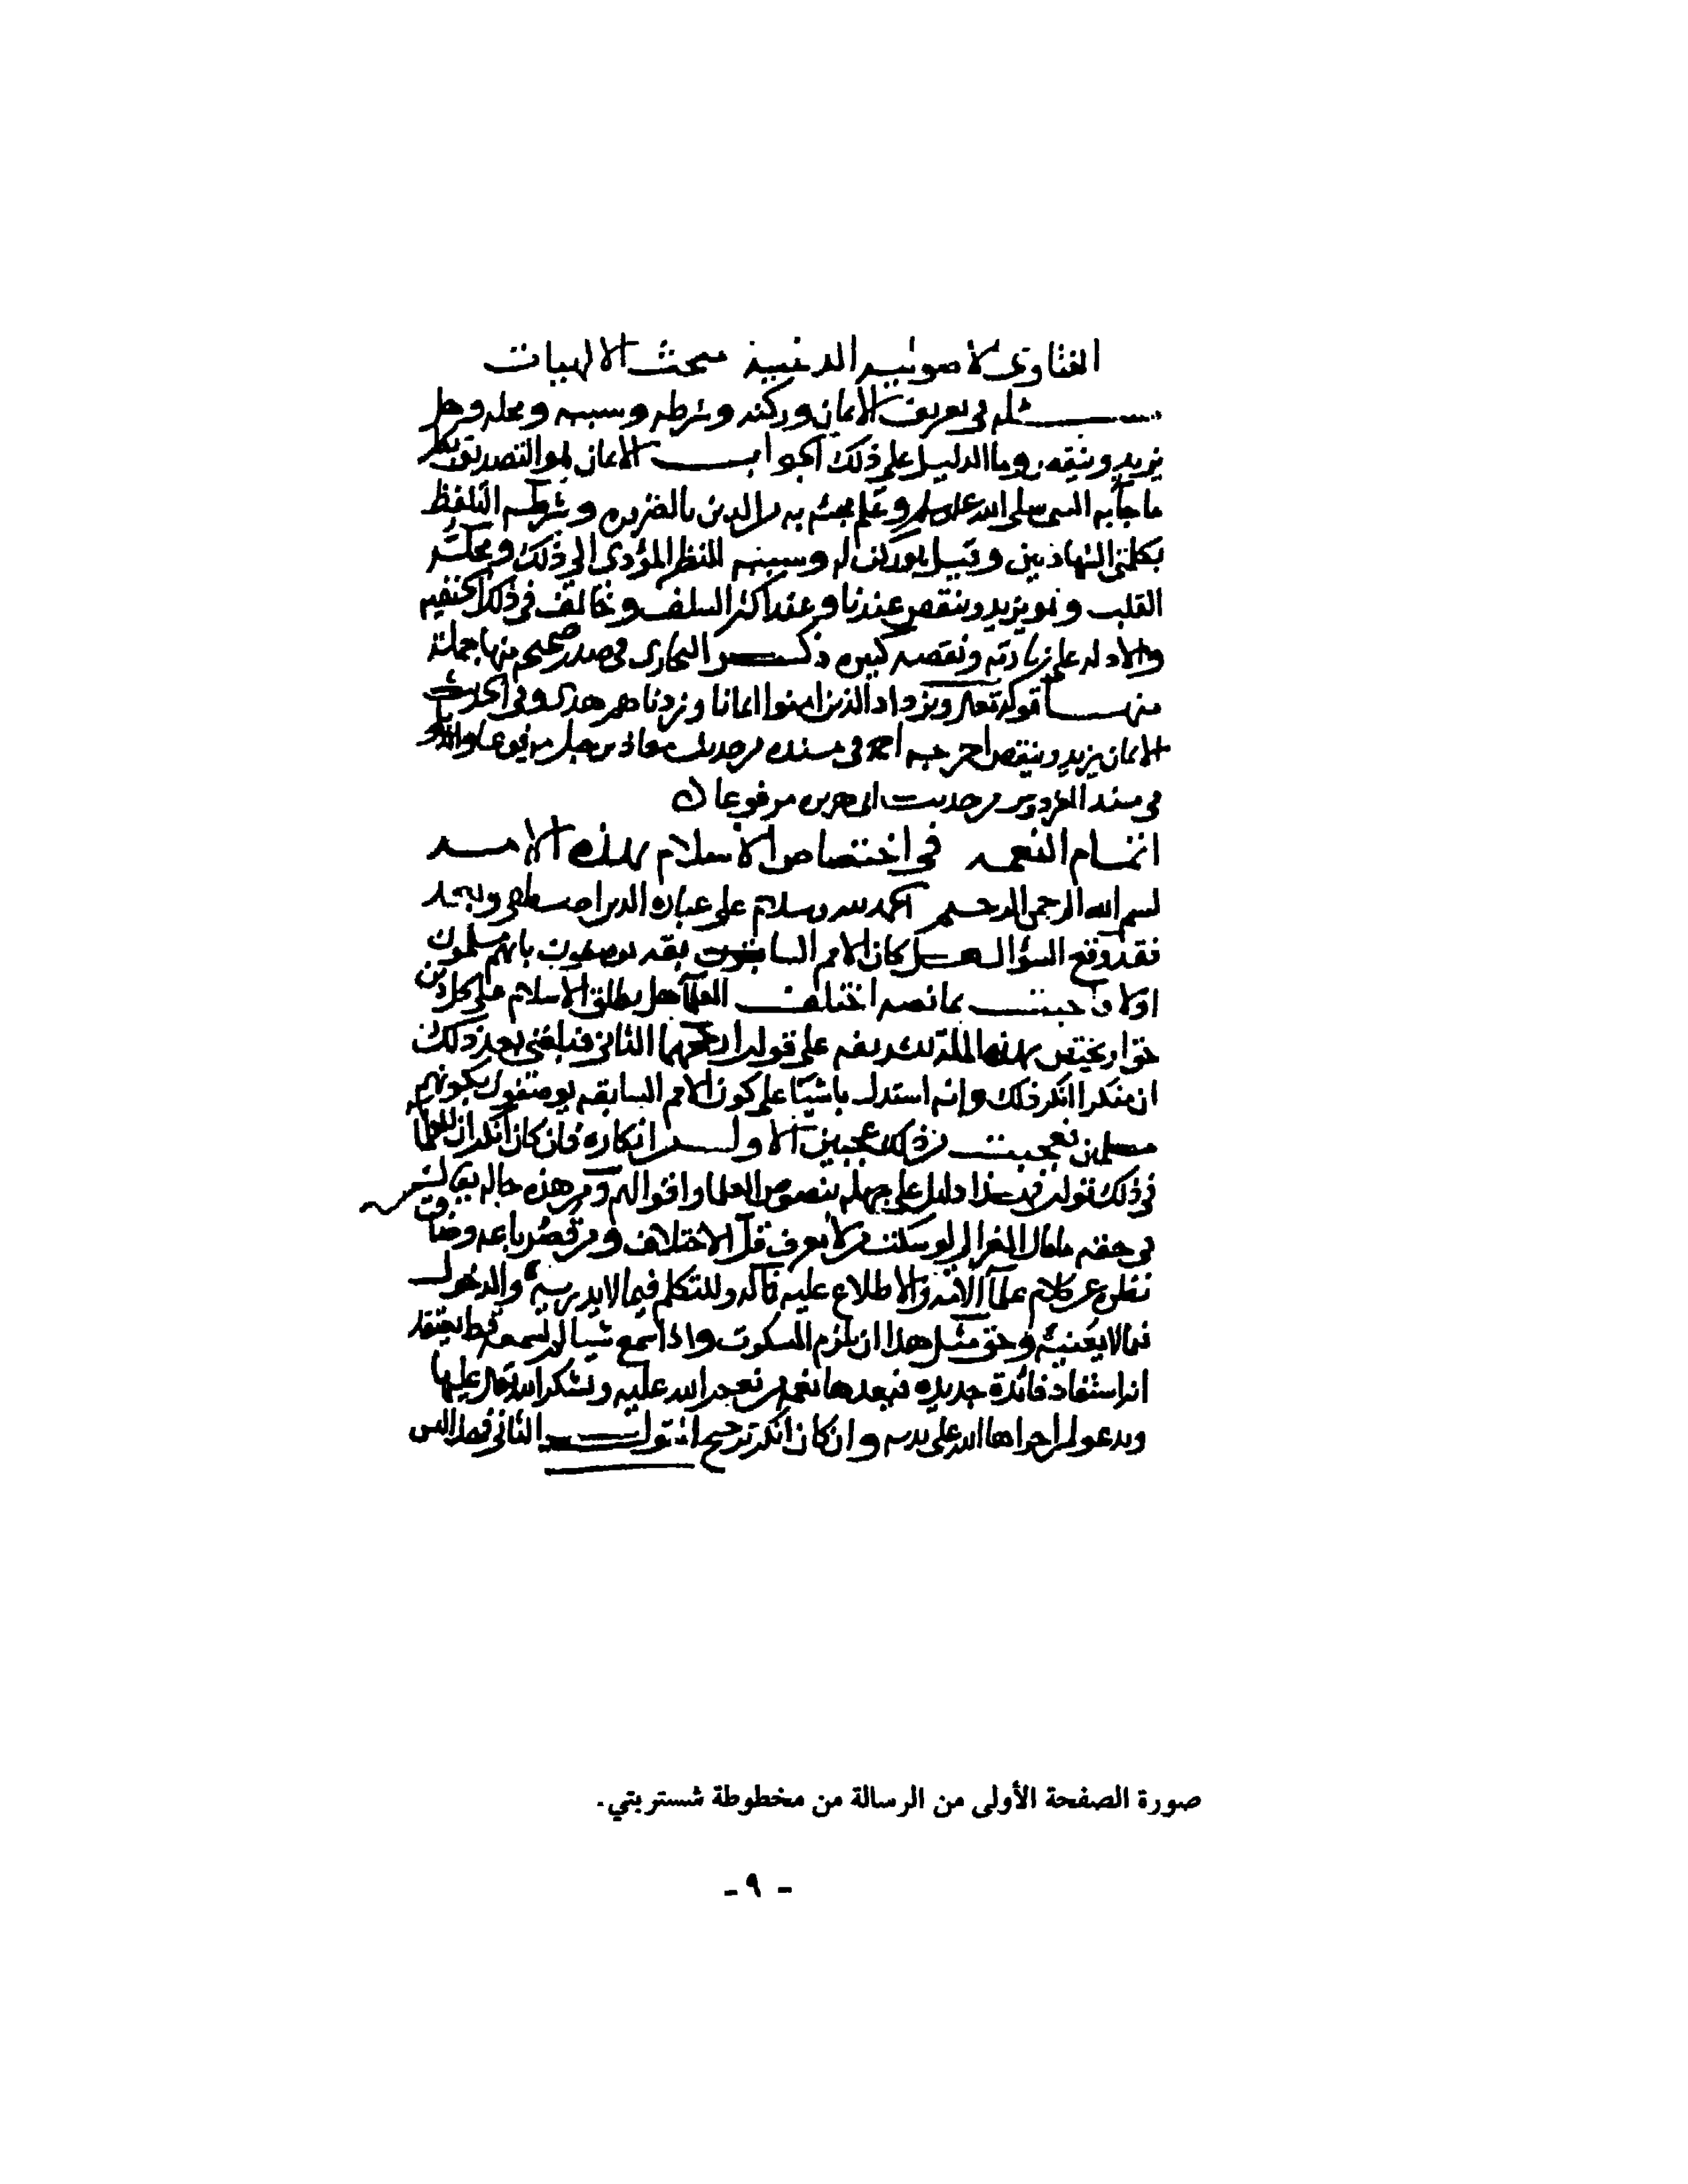 الفتاوى الاصولية الدينية مبحث الالهيات
مسئله في تعريف الايمان وركنه وشرطه وسببه ومحله وهل
يزيد وينقص وما الدليل على ذلك الجواب الايمان هو التصديق بكل
ما جاء به النبي صلى الله عليه وسلم وعلم مجيئه به من الدين بالضروره وشرطه التلفظ
بكلمتي الشهادتين وقيل هو ركن له وسببه النظر المؤدى الى ذلك ومحله
القلب وهو يزيد وينقص عندنا وعند اكثر السلف وخالف في ذلك الحنفيه
والادله على زيادته ونقصه كثيره ذكر البخارى في صدر صحيحه منها جملة
منها قوله تعالى ويزداد الذين امنوا ايمانا وزدناهم هدى وفي الحديث
الايمان يزيد وينقص اخرجه احمد في مسنده من حديث معاذ بن جبل مرفوعا والديلمي
في مسند الفردوس من حديث ابي هريره مرفوعا
اتمام النعمه في اختصاص الاسلام بهذه الامه
بسم الله الرحمن الرحيم الحمد لله وسلام على عباده الذين اصطفى وبعد
فقد وقع السؤال هل كان الامم السابقون بقه يوصفون بانهم مسلمون
اولا فاجبت بما نصه اختلف العلماء هل يطلق الاسلام على كل دين
حق او يختص بهذه الملة الشريفه على قولين ارجحهما الثاني فبلغني بعد ذلك
ان منكرا انكر ذلك وانه استدل باشيا على كون الامم السابقه يوصفون بكونهم
مسلمين فعجبت من ذلك عجبين الاول من انكاره فان كان انكر ان للعلما
في ذلك قولين فهذا دليل على جهله بنصوص العلما واقوالهم ومن هذه حاله يقال
في حقه ما قال الغزالي لو سكت من لا يعرف قل الاختلاف ومن قصر باعه وضاق
نظره عن كلام علماء الامة والاطلاع عليه فما له وللتكلم فيما لا يدريه والدخول
فيما لا يعنيه وحق مثل هذا ان يلزم السكوت واذا سمع شيا لم يسمعه قط يعتقد
انه استفاد فائدة جديده فيعدها نعمه من نعم الله عليه ويشكر الله تعالى عليها
ويدعو لمن اجراها الله على يديه وان كان انكر ترجيح القول الثاني فهذا ليس
صورة الصفحة الأولى من الرسالة من مخطوطة شستربتي.
- ٩ -